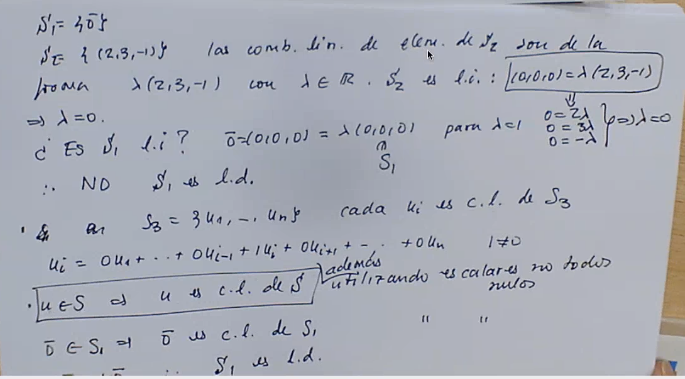 S₁ = {0̄}
S₂ = {(2,3,-1)} las comb. lin. de elem. de S₂ son de la
forma λ(2,3,-1) con λ ∈ ℝ. S₂ es l.i.: (0,0,0) = λ(2,3,-1)
⇒ λ=0.
⇓ 0 = 2λ
0 = 3λ
0 = -λ } ⇒ λ=0
¿ Es S₁ l.i? 0̄=(0,0,0) = λ(0,0,0) para λ=1
∩ S₁
∴ NO S₁ es l.d.
· en S₃ = {u₁, -, uₙ} cada uᵢ es c.l. de S₃
uᵢ = 0u₁ + ‥ + 0uᵢ₋₁ + 1uᵢ + 0uᵢ₊₁ + - ‥ + 0uₙ 1≠0
· u ∈ S ⇒ u es c.l. de S además
utilizando escalares no todos
nulos
0̄ ∈ S₁ ⇒ 0̄ es c.l. de S₁ " "
∴ S₁ es l.d.